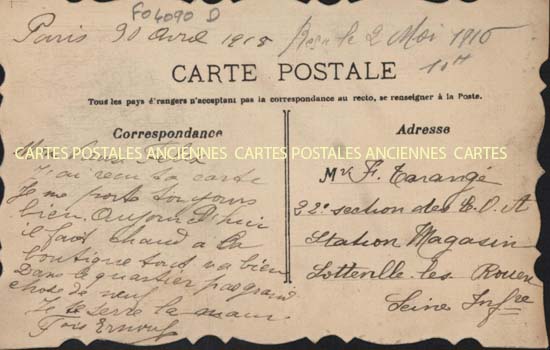 FO4090 D
Paris 30 avril 1915 Reçu le 2 Mai 1915
10H
CARTE POSTALE
Tous les pays étrangers n'acceptant pas la correspondance au recto, se renseigner à la Poste.
Correspondance
Adresse
Mon cher Félix
CARTES POSTALES ANCIENNES CARTES POSTALES ANCIENNES CARTES
J'ai reçu ta carte
Je me porte toujours
bien, aujourd'hui
il fait chaud a la
boutique tout va bien
Dans le quartier pas grand
chose de neuf
Je te serre la main
Mr F. Tarangé
22e section des C.O.A
Station Magasin
Sotteville-les Rouen
Seine Infre